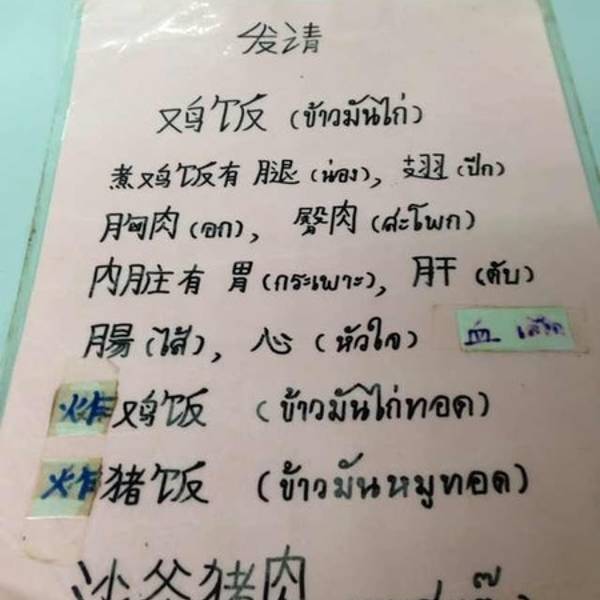 发请
鸡饭 (ข้าวมันไก่)
煮鸡饭有 腿 (น่อง), 翅 (ปีก)
胸肉 (อก), 臀肉 (สะโพก)
内脏有 胃 (กระเพาะ), 肝 (ตับ)
腸 (ไส้), 心 (หัวใจ) 血 เลือด
炸鸡饭 (ข้าวมันไก่ทอด)
炸猪饭 (ข้าวมันหมูทอด)
沙爷猪肉